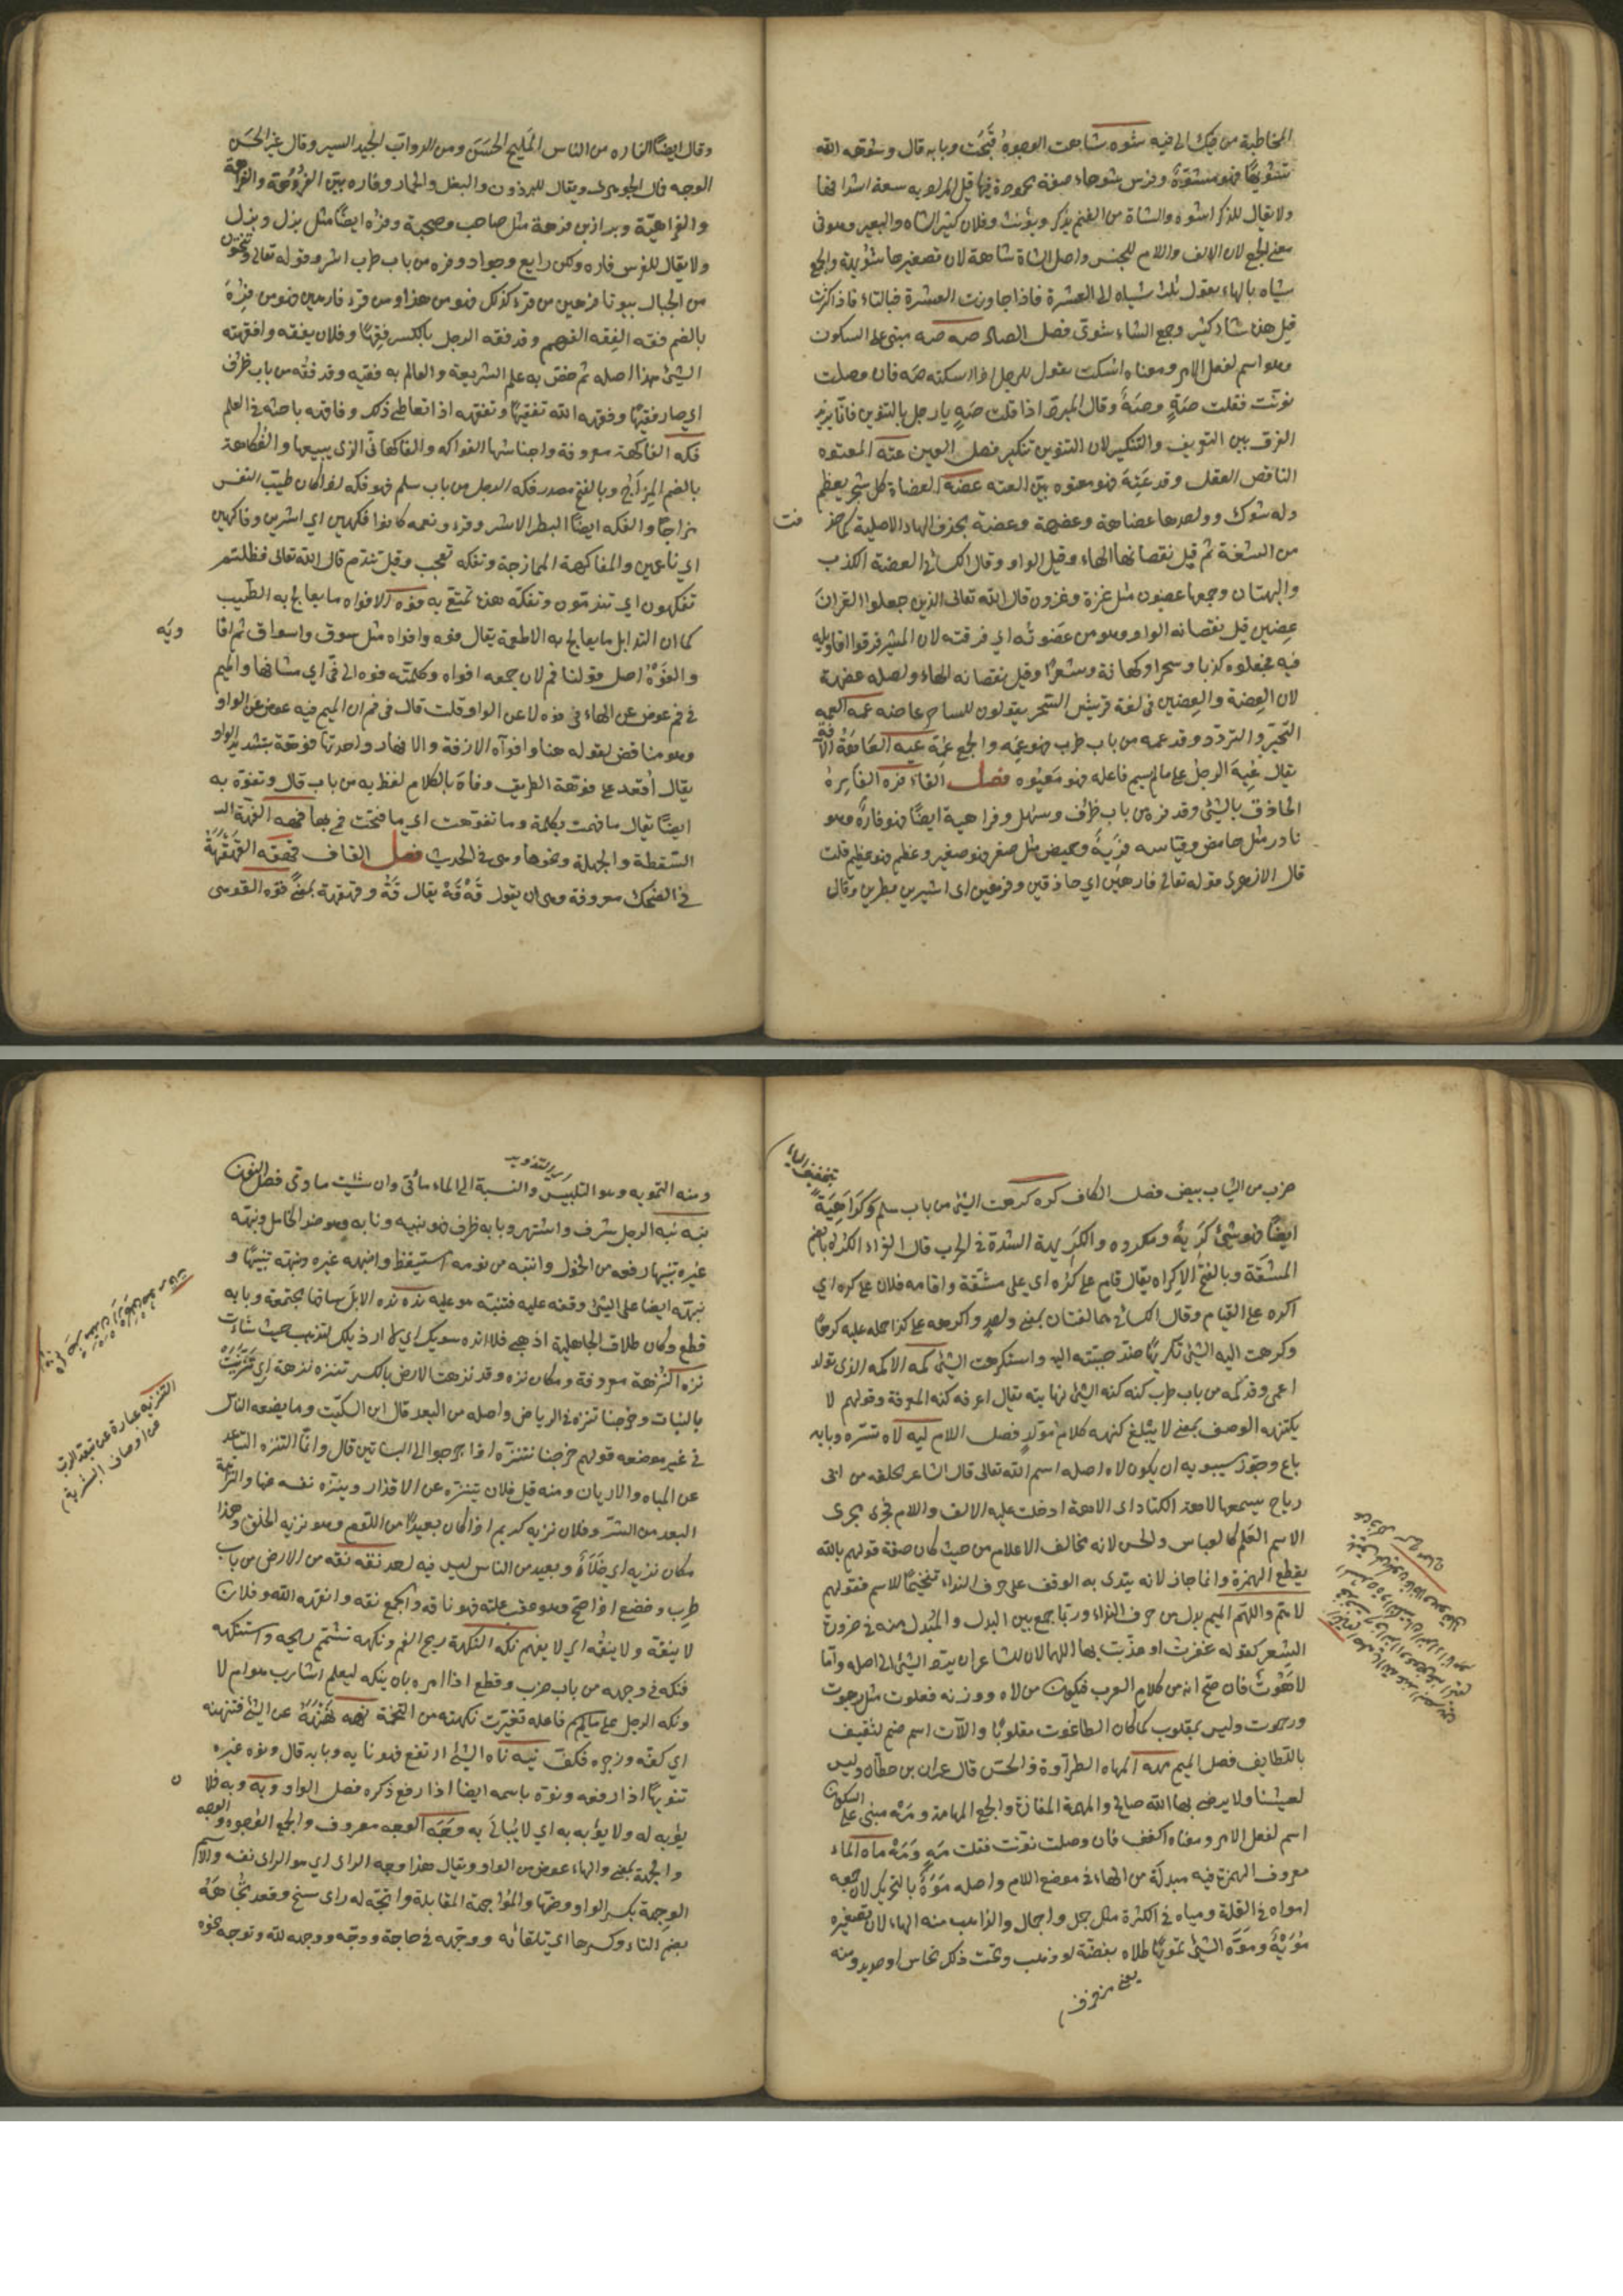 المخاطبة من فيك الى فيه شوه شاهت الوجوه قبحت وبابه قال وشوهه الله
تشويها فهو مشوه وفرس شوهاء صفة محمودة فيها قيل المراد به سعة اشداقها
ولا يقال للذكر اشوه والشاة من الغنم يذكر ويؤنث وفلان كثير الشاه والبعير وهو في
معنى الجمع لان الالف واللام للجنس واصل الشاة شاهة لان تصغيرها شويهة والجمع
شياه بالهاء يقول ثلث شياه الى العشرة فاذا جاوزت العشرة فبالتاء فاذا كثرت
قيل هذه شاء كثير وجمع الشاء شوى فصل الصاد صه صه مبنى على السكون
وهو اسم لفعل الامر ومعناه اسكت يقول للرجل اذا اسكته صه فان وصلت
نونت فقلت صه وصه وقال المبرد اذا قلت صه يا رجل بالتنوين فانما يريد
الفرق بين التعريف والتنكير لان التنوين تنكير فصل العين عته المعتوه
الناقص العقل وقد عته فهو معتوه بين العته عضه العضاة كل شجر يعظم
وله شوك وواحدها عضاهة وعضهة وعضة بحذف الهاء الاصلية كما حذ فت
من الشفة ثم قيل نقصانها الهاء وقيل الواو وقال الكسائى العضة الكذب
والبهتان وجمعها عضون مثل عزة وعزون قال الله تعالى الذين جعلوا القران
عضين قيل نقصانه الواو وهو من عضوته اي فرقته لان المشركين فرقوا اقاويله
فيه فجعلوه كذبا وسحرا وكهانة وشعرا وقيل نقصانه الهاء واصله عضهة
لان العضة والعضين فى لغة قريش السحر يقولون للساحر عاضه عمه العمه
التحير والتردد وقد عمه من باب طرب فهو عمه والجمع عمه عيه العاهة الآفة
يقال عيه الرجل على مالم يسم فاعله فهو معيوه فصل الفاء فره الفاره
الحاذق بالشئ وقد فره من باب ظرف وسهل وفراهية ايضا فهو فاره وهو
نادر مثل حامض وقياسه فريه وحميض مثل صغر فهو صغير وعظم فهو عظيم قلت
قال الازهرى قوله تعالى فارهين اي حاذقين وفرهين اى اشرين بطرين وقال
وقال ايضا الفاره من الناس المليح الحسن ومن الدواب الجيد السير وقال غير الحسن
الوجه قال الجوهرى ويقال للبرذون والبغل والحمار وفاره بين الفروهة والفراهة
والفراهية وبراذين فرهة مثل صاحب وصحبة وفره ايضا مثل بزل وبزل
ولا يقال للفرس فاره ولكن رايع وجواد وفره من باب طرب اشر وقوله تعالى وتنحتون
من الجبال بيوتا فرهين من قرء كذلك فهو من هذا ومن قرء فارهين فهو من فره
بالضم فقه الفقه الفهم وقد فقه الرجل بالكسر فقها وفلان يفقه وافقهته
الشئ هذا اصله ثم خص به علم الشريعة والعالم به فقيه وقد فقه من باب ظرف
اي صار فقيها وفقهه الله تفقيها وتفقه اذا تعاطى ذلك وفاقهه باحثه فى العلم
فكه الفاكهة معروفة واجناسها الفواكه والفاكهانى الذى يبيعها والفكاهة
بالضم المزاح وبالفتح مصدر فكه الرجل من باب سلم فهو فكه اذا كان طيب النفس
مزاحا والفكه ايضا البطر الاشر وقرء ونعمة كانوا فكهين اي اشرين وفاكهين
اي ناعمين والمفاكهة الممازحة وتفكه تعجب وقيل تندم قال الله تعالى فظلتم
تفكهون اي تندمون وتفكه هذه تمتع به فوه الافواه ما يعالج به الطيب
كما ان التوابل ما يعالج به الاطعمة يقال فوه وافواه مثل سوق واسواق ثم افا ويه
والفوه اصل قولنا فم لان جمعه افواه وكلمته فوه الى فى اي مشافها والميم
فى فم عوض عن الهاء فى فوه لا عن الواو قلت قال فى فم ان الميم فيه عوض عن الواو
وهو مناقض لقوله هنا وافواه الازقة والانهار واحدتها فوهة بتشديد الواو
يقال اقعد على فوهة الطريق وفاه بالكلام لفظ به من باب قال وتفوه به
ايضا يقال ما فهت بكلمة وما تفوهت اي ما فتحت فمى بها فهه الفهة
السقطة والجهلة ونحوها وهى فى الحديث فصل القاف قهقه القهقهة
فى الضحك معروفة وهى ان يقول قه قه يقال قه وقهقهة بمعنى قوه القوهى
ضرب من الثياب بيض فصل الكاف كره كرهت الشئ من باب سلم وكراهية
بتخفيف الياء
ايضا فهو شئ كريه ومكروه والكريهة الشدة فى الحرب قال الفراء الكره بالضم
المشقة وبالفتح الاكراه يقال قام على كره اي على مشقة واقامه فلان على كره اي
اكره على القيام وقال الكسائى هما لغتان بمعنى واحد واكرهه على كذا حمله عليه كرها
وكرهت اليه الشئ تكريها ضد حببته اليه واستكرهت الشئ كمه الاكمه الذى تولد
اعمى وقد كمه من باب طرب كنه كنه الشئ نهايته يقال اعرفه كنه المعرفة وقولهم لا
يكتنهه الوصف بمعنى لا يبلغ كنهه كلام مولد فصل اللام ليه لاه تستره وبابه
باع وجوز سيبويه ان يكون لاه اصله اسم الله تعالى قال الشاعر كحلفه من ابى
رياح يسمعها لاهه الكبار اى الاهه ادخلت عليه الالف واللام فجرى مجرى
الاسم العلم كالعباس والحسن الا انه مخالف الاعلام من حيث كان صفة قولهم يا الله
بقطع الهمزة وانما جاز لانه ينوى به الوقف على حرف النداء تفخيما للاسم فقولهم
لاهم واللهم الميم بدل من حرف النداء وربما جمع بين البدل والمبدل منه فى ضرورة
الشعر كقوله غفرت او عذبت يا اللهما لان للشاعر ان يرد الشئ الى اصله واما
لاهوت فان صح انه من كلام العرب فيكون من لاه ووزنه فعلوت مثل رهبوت
ورحموت وليس بمقلوب كما كان الطاغوت مقلوبا واللات اسم صنم لثقيف
بالطايف فصل الميم مهه المهاه الطراوة والحسن قال عمران بن حطان وليس
لعيشنا هذا مهاه والمهمه المفازة والجمع المهامه ومه مبنى على السكون
اسم لفعل الامر ومعناه اكفف فان وصلت نونت فقلت مه ومه ماه الماء
معروف الهمزة فيه مبدلة من الهاء فى موضع اللام واصله موه بالتحريك لان جمعه
امواه فى القلة ومياه فى الكثرة مثل جمل واجمال والذاهب منه الهاء لان تصغيره
مويه وموه الشئ تمويها طلاه بفضة او ذهب وتحت ذلك نحاس او حديد ومنه
يعنى مزخرف
ومنه التمويه وهو التلبيس والنسبة الى الماء مائى وان شئت ماوى فصل النون
نبه نبه الرجل شرف واشتهر وبابه ظرف فهو نبيه ونابه وهو ضد الخامل ونبهه
غيره تنبيها رفعه من الخمول وانتبه من نومه استيقظ وانبهه غيره ونبهه تنبيها و
نبهه ايضا على الشئ وقفه عليه فتنبه هو عليه نده نده الابل ساقها مجتمعة وبابه
قطع وكان طلاق الجاهلية اذهبى فلا انده سربك اي لا ارد ابلك لتذهب حيث شاءت
نزه النزهة معروفة ومكان نزه وقد نزهت الارض بالكسر تنزه نزهة اي تزينت
بالنبات وخرجنا نتنزه فى الرياض واصله من البعد قال ابن السكيت ومما يضعه الناس
فى غير موضعه قولهم خرجنا نتنزه اذا خرجوا الى البساتين قال وانما التنزه التباعد
عن المياه والارياف ومنه قيل فلان يتنزه عن الاقذار وينزه نفسه عنها والنزاهة
البعد من الشر وفلان نزيه كريم اذا كان بعيدا من اللؤم وهو نزيه الخلق وهذا
مكان نزيه اي خلاء وبعيد من الناس ليس فيه احد نقه نقه من الارض من باب
طرب وخضع اذا صح وهو عقب علته فهو ناقه والجمع نقه وانقهه الله وفلان
لا يفقه ولا ينقه اي لا يفهم نكه النكهة ريح الفم ونكهه تشمم ريحه واستنكهه
فنكه فى وجهه من باب ضرب وقطع اذا امره بان ينكه ليعلم اشارب هو ام لا
ونكه الرجل على مالم يسم فاعله تغيرت نكهته من التخمة نهه نهنهه عن الشئ فتنهنه
اي كفه وزجره فكف نيه ناه الشئ ارتفع فهو نايه وبابه قال ونوه غيره
تنويها اذا رفعه ونوه باسمه ايضا اذا رفع ذكره فصل الواو وبه وبه فلا ن
يؤبه له ولا يؤبه به اي لا يبالى به وجه الوجه معروف والجمع الوجوه والوجه
والجهة بمعنى والهاء عوض من الواو ويقال هذا وجه الراى اي هو الراى نفسه والاسم
الوجهة بكسر الواو وضمها والمواجهة المقابلة واتجه له راى سنح وقعد تجاهه
بضم التاء وكسرها اي تلقائه ووجهه فى حاجة ووجهه ووجهه لله وتوجه نحوه
التنزيه عبارة عن تبعد الرب
عن اوصاف البشرية